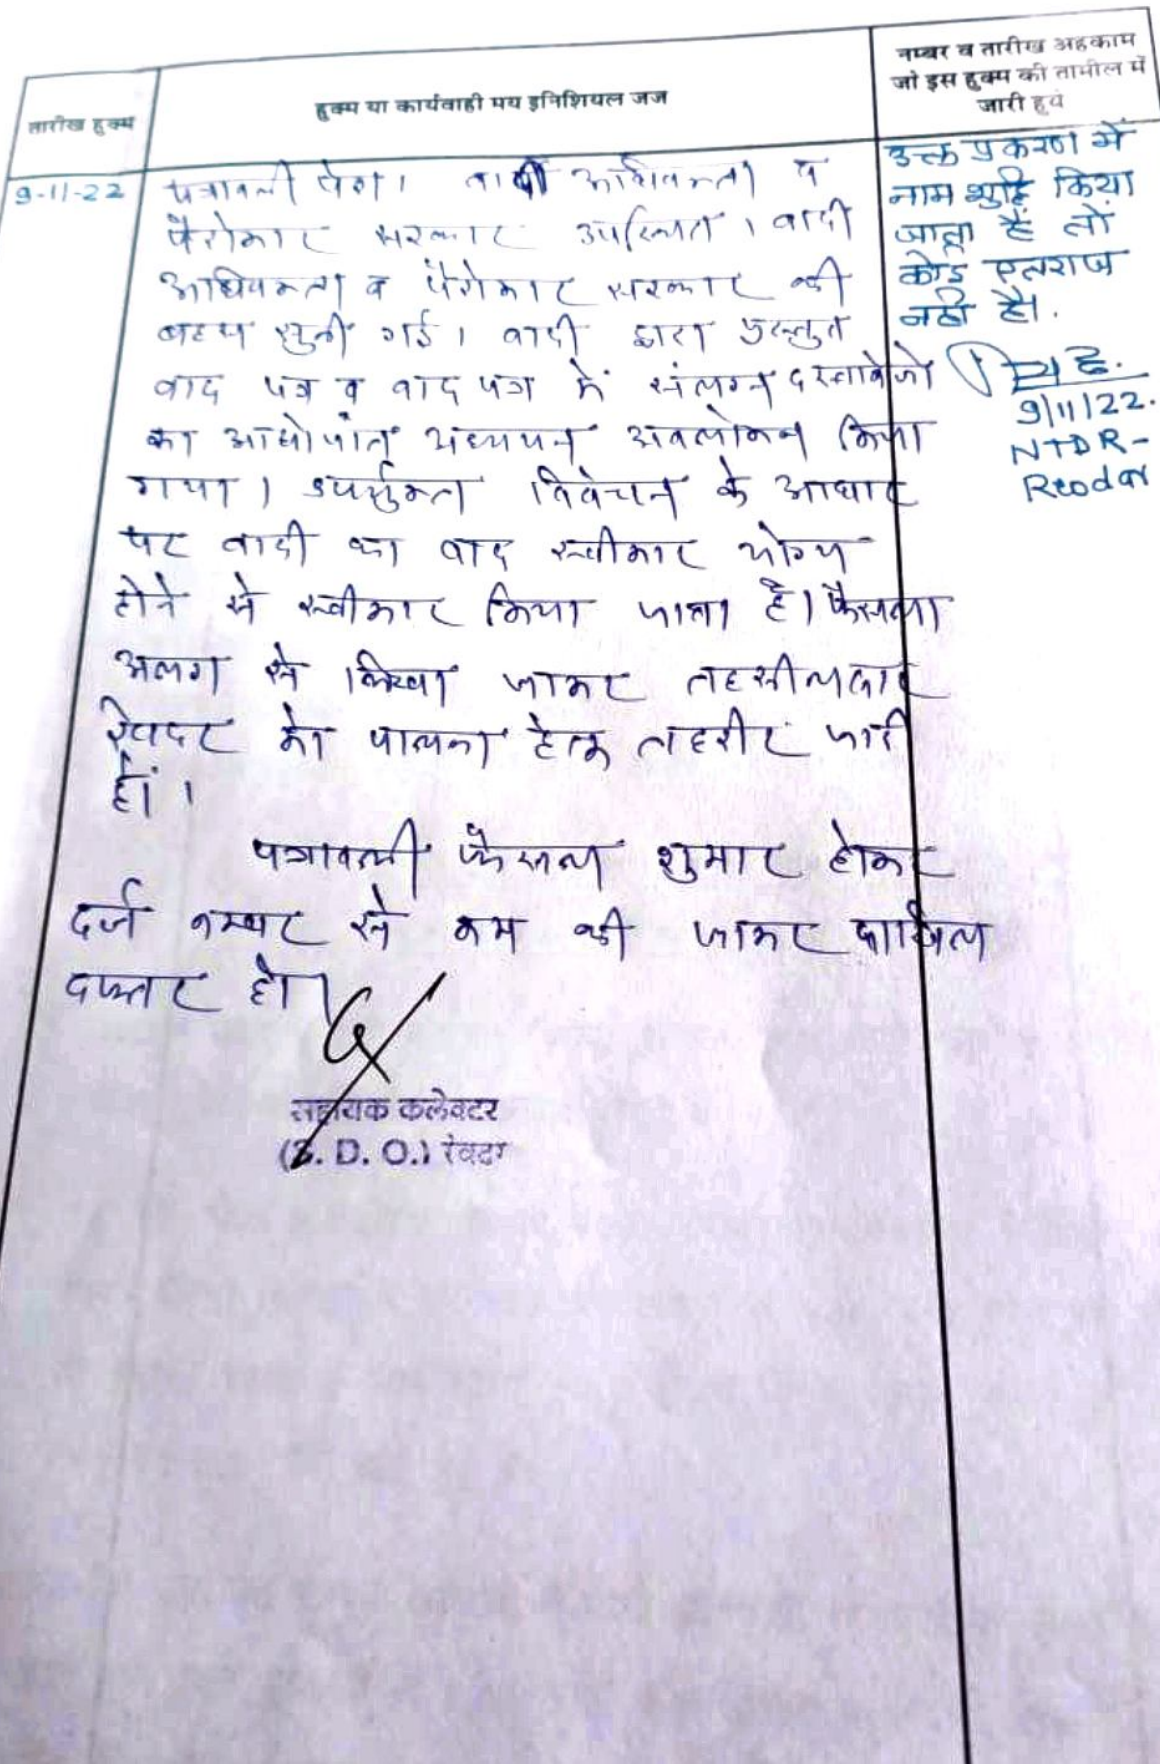 तारीख हुक्म
हुक्म या कार्यवाही मय इनिशियल जज
नम्बर व तारीख अहकाम
जो इस हुक्म की तामील में
जारी हुवे
9-11-22
पत्रावली पेश। वादी अधिवक्ता व
पैरोकार सरकार उपस्थित। वादी
अधिवक्ता व पैरोकार सरकार की
बहस सुनी गई। वादी द्वारा प्रस्तुत
वाद पत्र व वाद पत्र में संलग्न दस्तावेजो
का आधोपांत अध्ययन अवलोकन किया
गया। उपर्युक्त विवेचन के आधार
पर वादी का वाद स्वीकार योग्य
होने से स्वीकार किया जाता है। फैसला
अलग से लिखा जाकर तहसीलदार
रेवदर को पालना हेतु तहरीर जारी
हों।
पत्रावली फैसल शुमार होकर
दर्ज नम्बर से कम की जाकर दाखिल
दफ्तर हो।
सहायक कलेक्टर
(S. D. O.) रेवदर
उक्त प्रकरण में
नाम शुद्धि किया
जाता हैं तो
कोई एतराज
नही है।
9/11/22.
NTDR-
Reodar